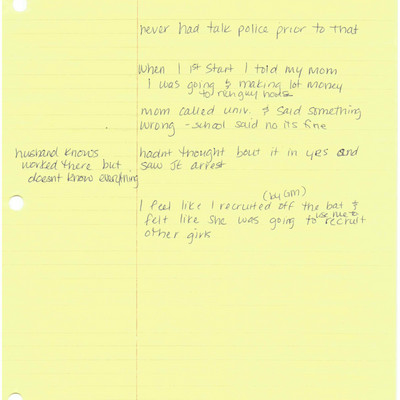 never had talk police prior to that
When I 1st start I told my mom
I was going & making lot money
to renguy house
mom called univ. & said something
wrong - school said no its fine
husband knows
worked there but
doesnt know everything
hadnt thought bout it in yrs and
saw JE arrest
(by GM)
I feel like I recruited off the bat &
felt like she was going to recruit
use me to
other girls